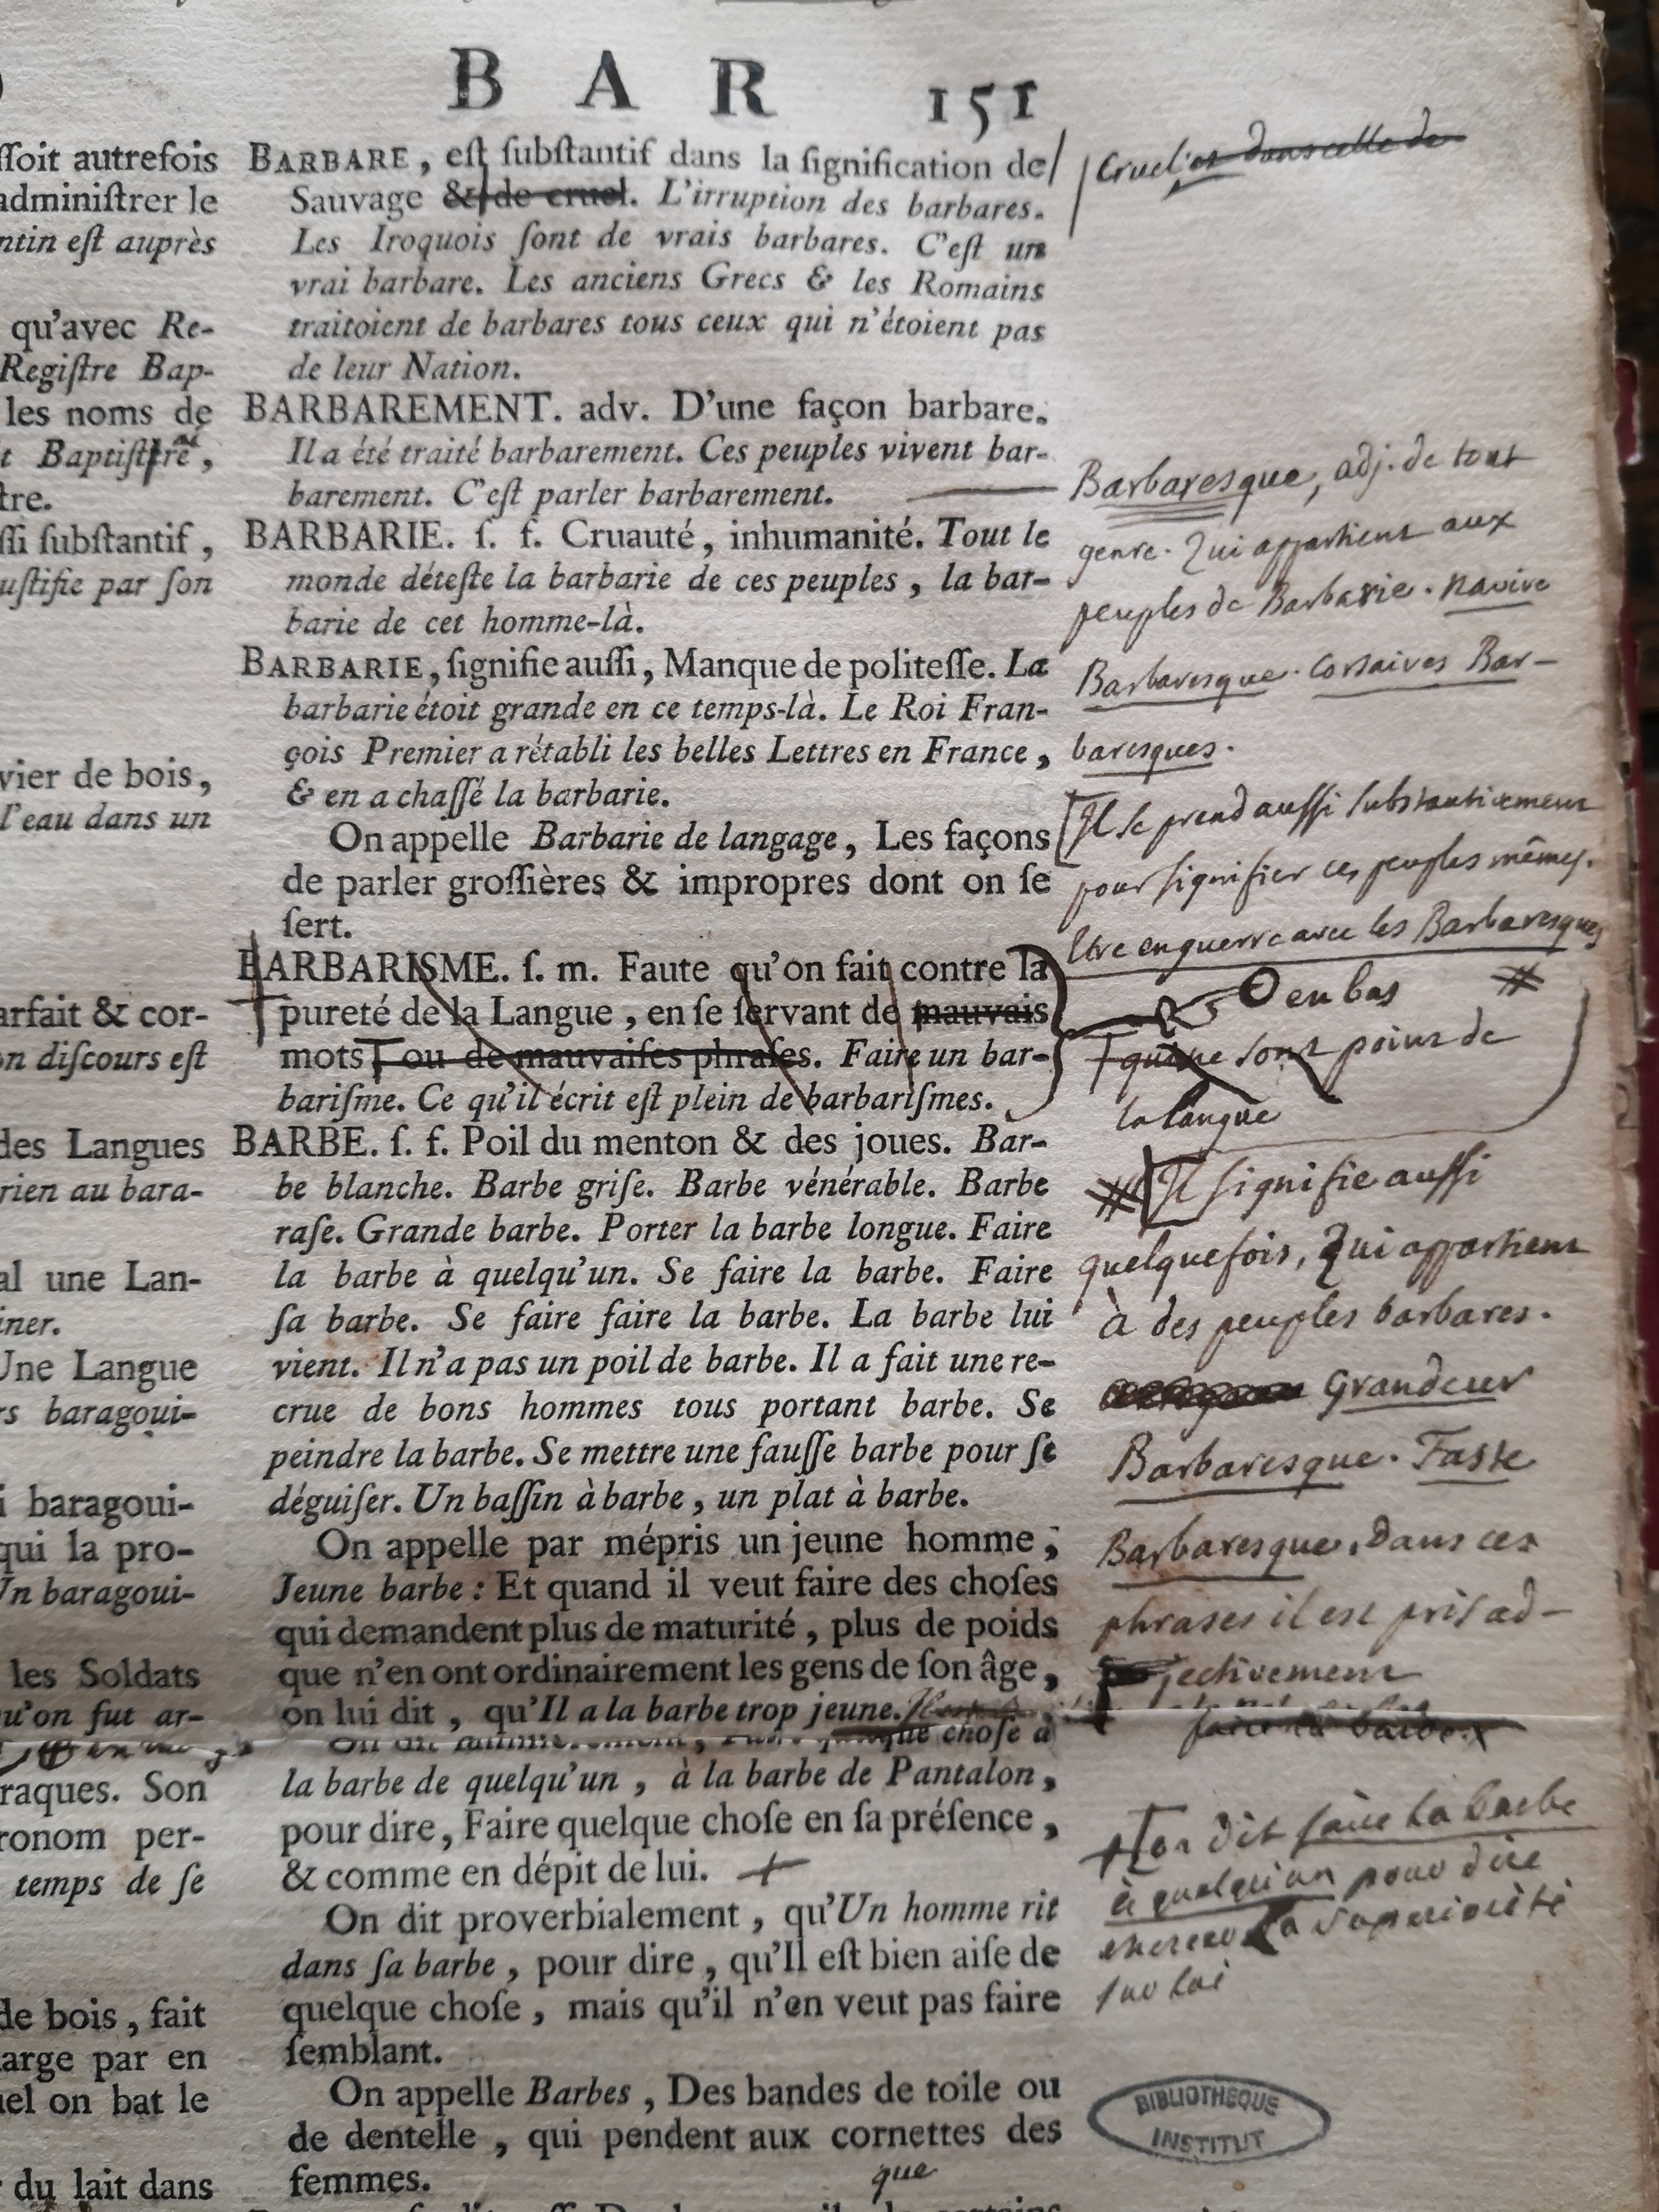 B A R 151
ſſoit autrefois
adminiſtrer le
ntin eſt auprès
qu'avec Re-
Regiſtre Bap-
les noms de
t Baptiſtere,
tre.
ſſi ſubſtantif,
uſtifie par ſon
vier de bois,
l'eau dans un
arfait & cor-
on diſcours eſt
des Langues
rien au bara-
al une Lan-
iner.
Une Langue
rs baragoui-
i baragoui-
qui la pro-
Un baragoui-
les Soldats
u'on fut ar-
raques. Son
ronom per-
temps de ſe
de bois, fait
arge par en
uel on bat le
du lait dans
BARBARE, eſt ſubſtantif dans la ſignification de
Sauvage & de cruel. L'irruption des barbares.
Les Iroquois ſont de vrais barbares. C'eſt un
vrai barbare. Les anciens Grecs & les Romains
traitoient de barbares tous ceux qui n'étoient pas
de leur Nation.
BARBAREMENT. adv. D'une façon barbare.
Il a été traité barbarement. Ces peuples vivent bar-
barement. C'eſt parler barbarement.
BARBARIE. ſ. f. Cruauté, inhumanité. Tout le
monde déteſte la barbarie de ces peuples, la bar-
barie de cet homme-là.
BARBARIE, ſignifie auſſi, Manque de politeſſe. La
barbarie étoit grande en ce temps-là. Le Roi Fran-
çois Premier a rétabli les belles Lettres en France,
& en a chaſſé la barbarie.
On appelle Barbarie de langage, Les façons
de parler groſſières & impropres dont on ſe
ſert.
BARBARISME. ſ. m. Faute qu'on fait contre la
pureté de la Langue, en ſe ſervant de mauvais
mots ou de mauvaiſes phraſes. Faire un bar-
bariſme. Ce qu'il écrit eſt plein de barbariſmes.
BARBE. ſ. f. Poil du menton & des joues. Bar-
be blanche. Barbe griſe. Barbe vénérable. Barbe
raſe. Grande barbe. Porter la barbe longue. Faire
la barbe à quelqu'un. Se faire la barbe. Faire
ſa barbe. Se faire faire la barbe. La barbe lui
vient. Il n'a pas un poil de barbe. Il a fait une re-
crue de bons hommes tous portant barbe. Se
peindre la barbe. Se mettre une fauſſe barbe pour ſe
déguiſer. Un baſſin à barbe, un plat à barbe.
On appelle par mépris un jeune homme,
Jeune barbe : Et quand il veut faire des choſes
qui demandent plus de maturité, plus de poids
que n'en ont ordinairement les gens de ſon âge,
on lui dit, qu'Il a la barbe trop jeune.
choſe à
la barbe de quelqu'un, à la barbe de Pantalon,
pour dire, Faire quelque choſe en ſa préſence,
& comme en dépit de lui. +
On dit proverbialement, qu'Un homme rit
dans ſa barbe, pour dire, qu'Il eſt bien aiſe de
quelque choſe, mais qu'il n'en veut pas faire
ſemblant.
On appelle Barbes, Des bandes de toile ou
de dentelle, qui pendent aux cornettes des
femmes.
que
Cruel, et dans celle de
Barbaresque, adj. de tout
genre. Qui appartient aux
peuples de Barbarie. navire
Barbaresque. Corsaires Bar-
baresques.
Il se prend aussi substantivement
pour signifier ces peuples mêmes.
Etre en guerre avec les Barbaresques
en bas #
qui ne sont point de
la langue
# Il signifie aussi
quelquefois, Qui appartient
à des peuples barbares.
Grandeur
Barbaresque. Faste
Barbaresque. Dans ces
phrases il est pris ad-
jectivement
faire la barbe
+ on dit faire la barbe
à quelqu'un pour dire
exercer la superiorité
sur lui
BIBLIOTHÈQUE
INSTITUT